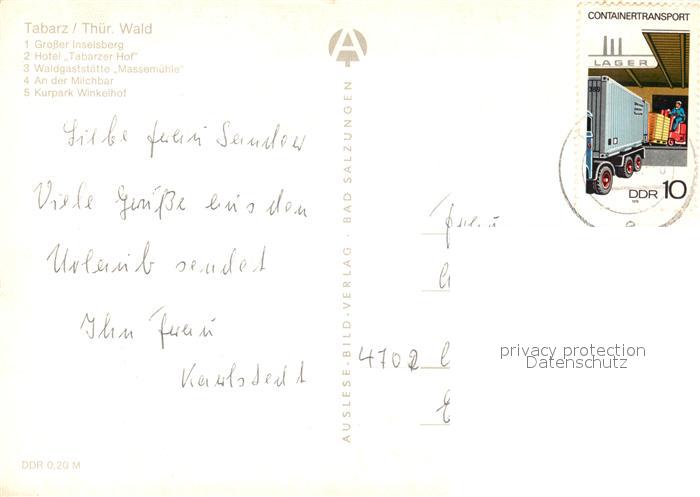 Tabarz / Thür. Wald
1 Großer Inselsberg
2 Hotel „Tabarzer Hof"
3 Waldgaststätte „Massemühle"
4 An der Milchbar
5 Kurpark Winkelhof
Liebe Frau Sandow
Viele Grüße aus den
Urlaub sendet
Ihn Frau
Karlstedt
DDR 0,20 M
AUSLESE-BILD-VERLAG · BAD SALZUNGEN
CONTAINERTRANSPORT
LAGER
DDR 10
Frau
4702
privacy protection
Datenschutz